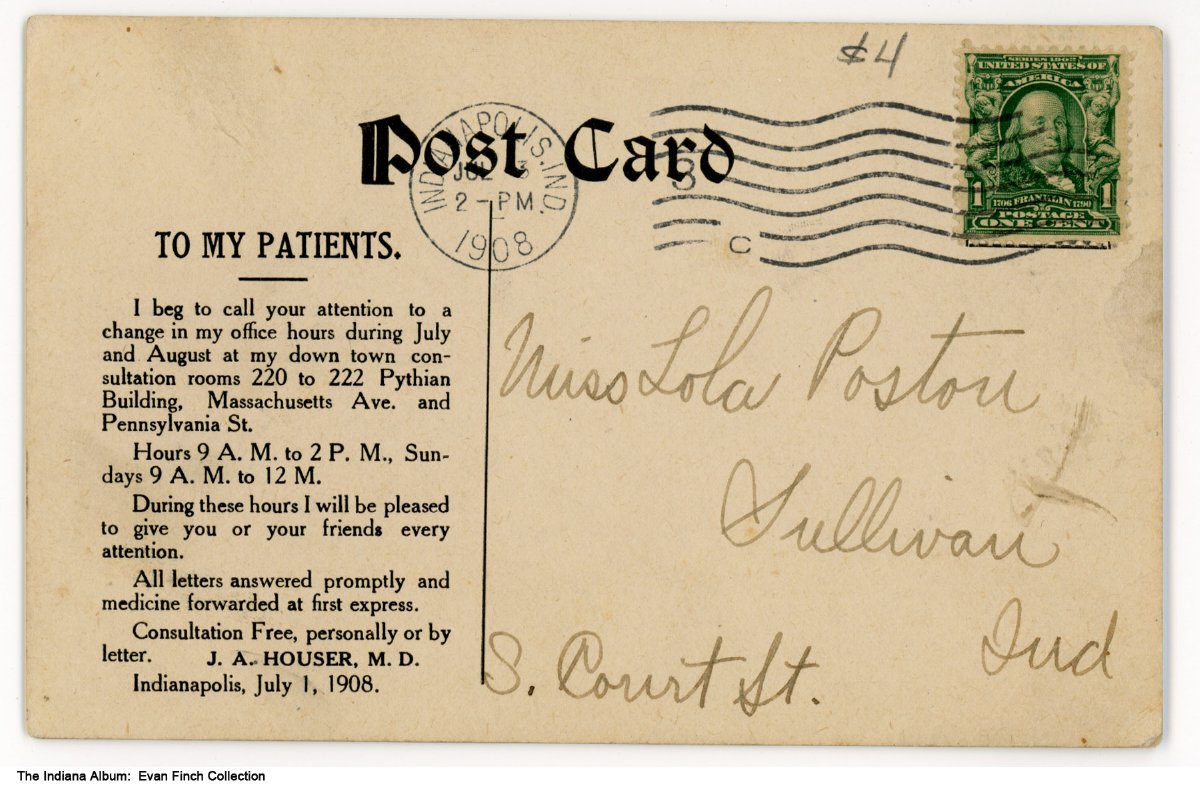 $4
Post Card
INDIANAPOLIS, IND.
JUL 3
2 - PM
1908
3
C
SERIES 1902
UNITED STATES OF
AMERICA
1 1706 FRANKLIN 1790 1
POSTAGE
ONE CENT
TO MY PATIENTS.
I beg to call your attention to a
change in my office hours during July
and August at my down town con-
sultation rooms 220 to 222 Pythian
Building, Massachusetts Ave. and
Pennsylvania St.
Hours 9 A. M. to 2 P. M., Sun-
days 9 A. M. to 12 M.
During these hours I will be pleased
to give you or your friends every
attention.
All letters answered promptly and
medicine forwarded at first express.
Consultation Free, personally or by
letter. J. A. HOUSER, M. D.
Indianapolis, July 1, 1908.
Miss Lola Poston
Sullivan
Ind
S. Court St.
The Indiana Album: Evan Finch Collection